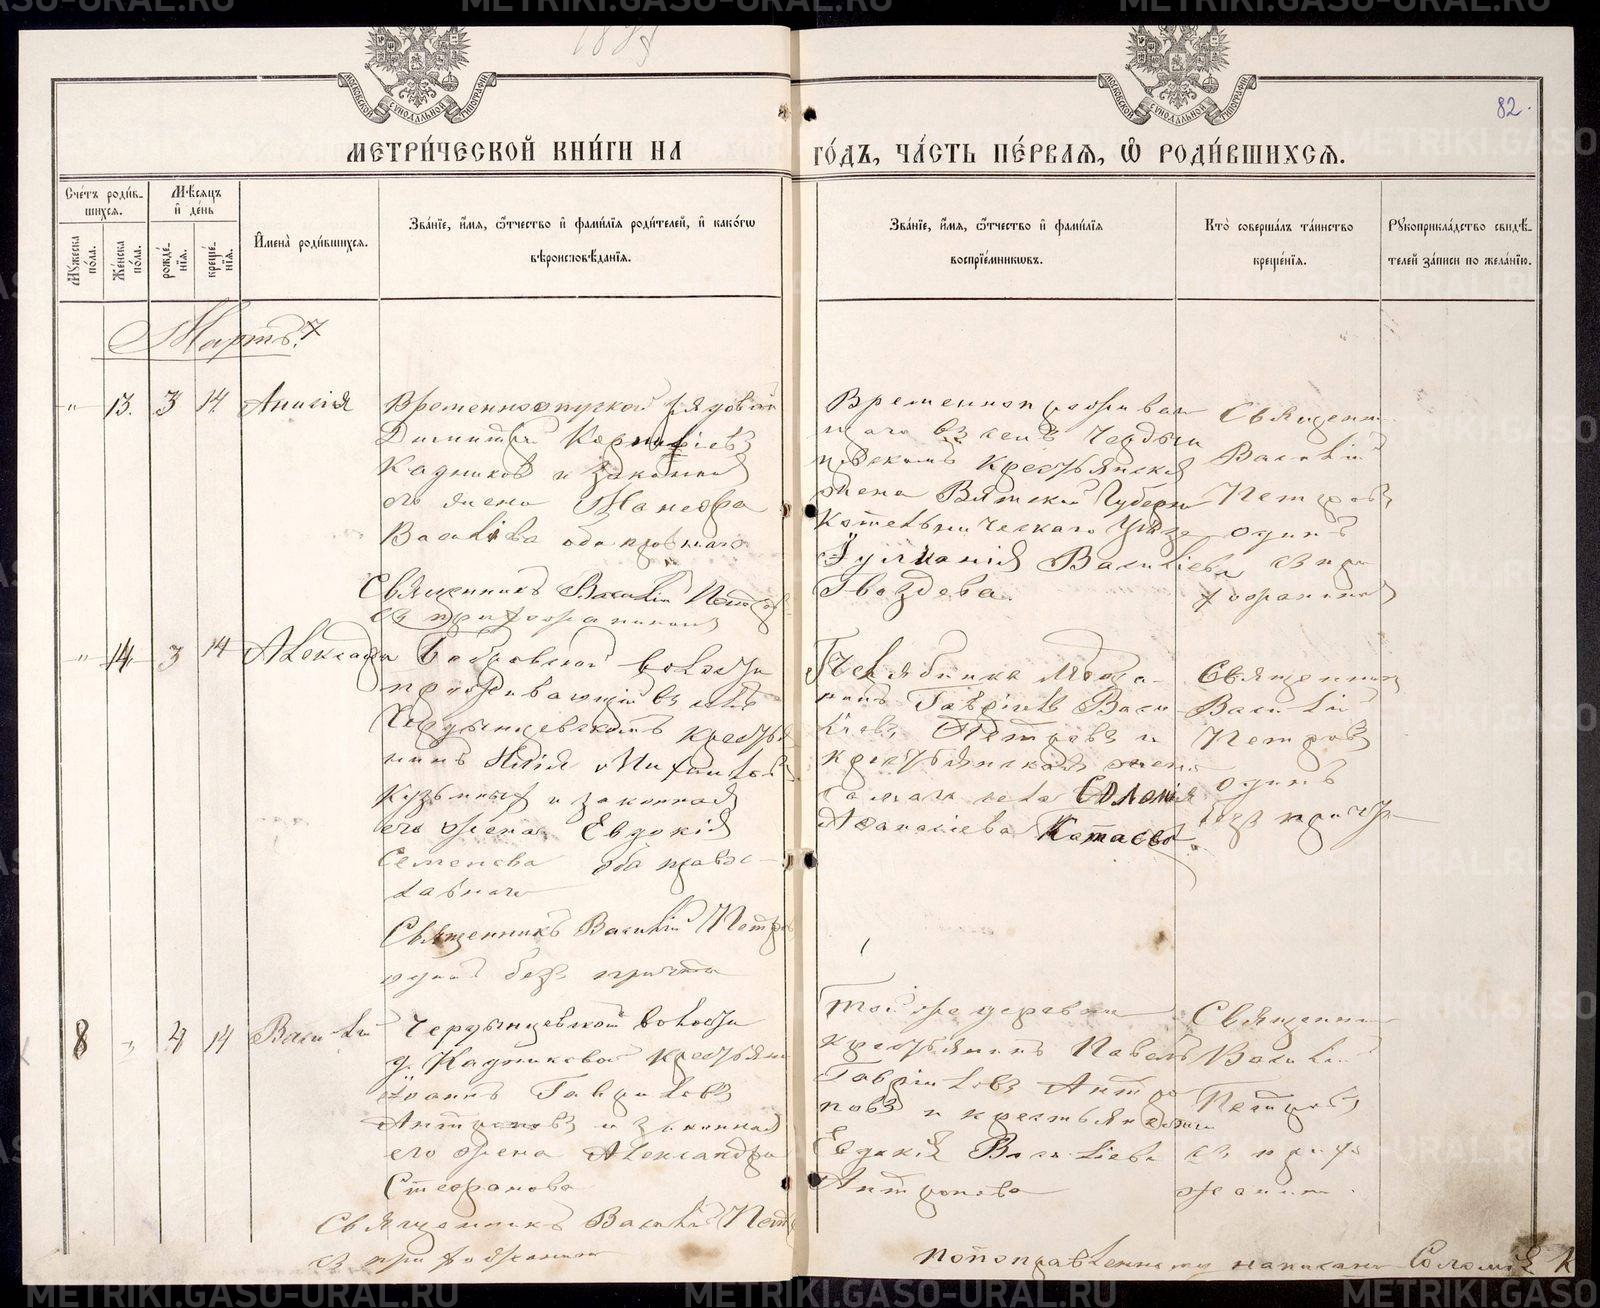 1888
82.
МЕТРИ́ЧЕСКОЙ КНИ́ГИ НА
ГО́ДЪ, ЧА́СТЬ ПЕ́РВАѦ, Ѽ РОДИ́ВШИХСѦ.
Сче́тъ роди́в-
шихся.
Мѣ́сяцъ
и̂ де́нь
Му́жеска по́ла.
Же́нска по́ла.
рожде́нїя.
креще́нїя.
И҆мена̀ роди́вшихся.
Зва́нїе, и҆́мя, ѿ́чество и҆ фами́лїя роди́телей, и҆ како́гѡ
вѣроисповѣ́данїя.
Зва́нїе, и҆́мя, ѿ́чество и҆ фами́лїя
воспрїе́мникѡвъ.
Кто̀ соверша́лъ та́инство
креще́нїя.
Рꙋкоприкла́дство свидѣ́-
телей за́писи по жела́нїю.
Мартъ.
" 13. 3 14 Анисія
Временноотпускной рядовой
Димитрій Корниліевъ
Кадниковъ и законная
его жена Манефа
Васильева оба правосл.
Священникъ Василій Петровъ
Временнопрожива
щаго въ селѣ Чердын
цевскомъ крестьянская
жена Вятской Губерн
Котельническаго Уѣзд
Іуліанія Васильева
Гвоздева.
Священн
Василій
Петровъ
одинъ
" 14 3 14 Александра
волости
проживающій въ селѣ
Чердынцевскомъ крестья
нинъ Илія Михаиловъ
Кузьминых и законная
его жена Евдокія
Семенова оба право-
славнаго
Священникъ Василій Петровъ
одинъ безъ причта
Челябинска мѣща-
нинъ Гавріилъ Васи
ліевъ Петровъ и
крестьянская жена
села Соломія
Афанасіева Катаева.
Священник
Василій
Петровъ
одинъ
безъ причт
8 " 4 14 Василій
Чердынцевской волости
д. Кадниковой крестьян
Іоаннъ Гавриловъ
Антроповъ и законная
его жена Александра
Стефанова
Священникъ Василій Петр
Той же деревни
крестьянинъ Павелъ
Гавріиловъ Антро
повъ и крестьянская
Евдокія Васильева
Антропова
Священник
Василій
Петровъ
По поправленному написано Соломія К
METRIKI.GASO-URAL.RU